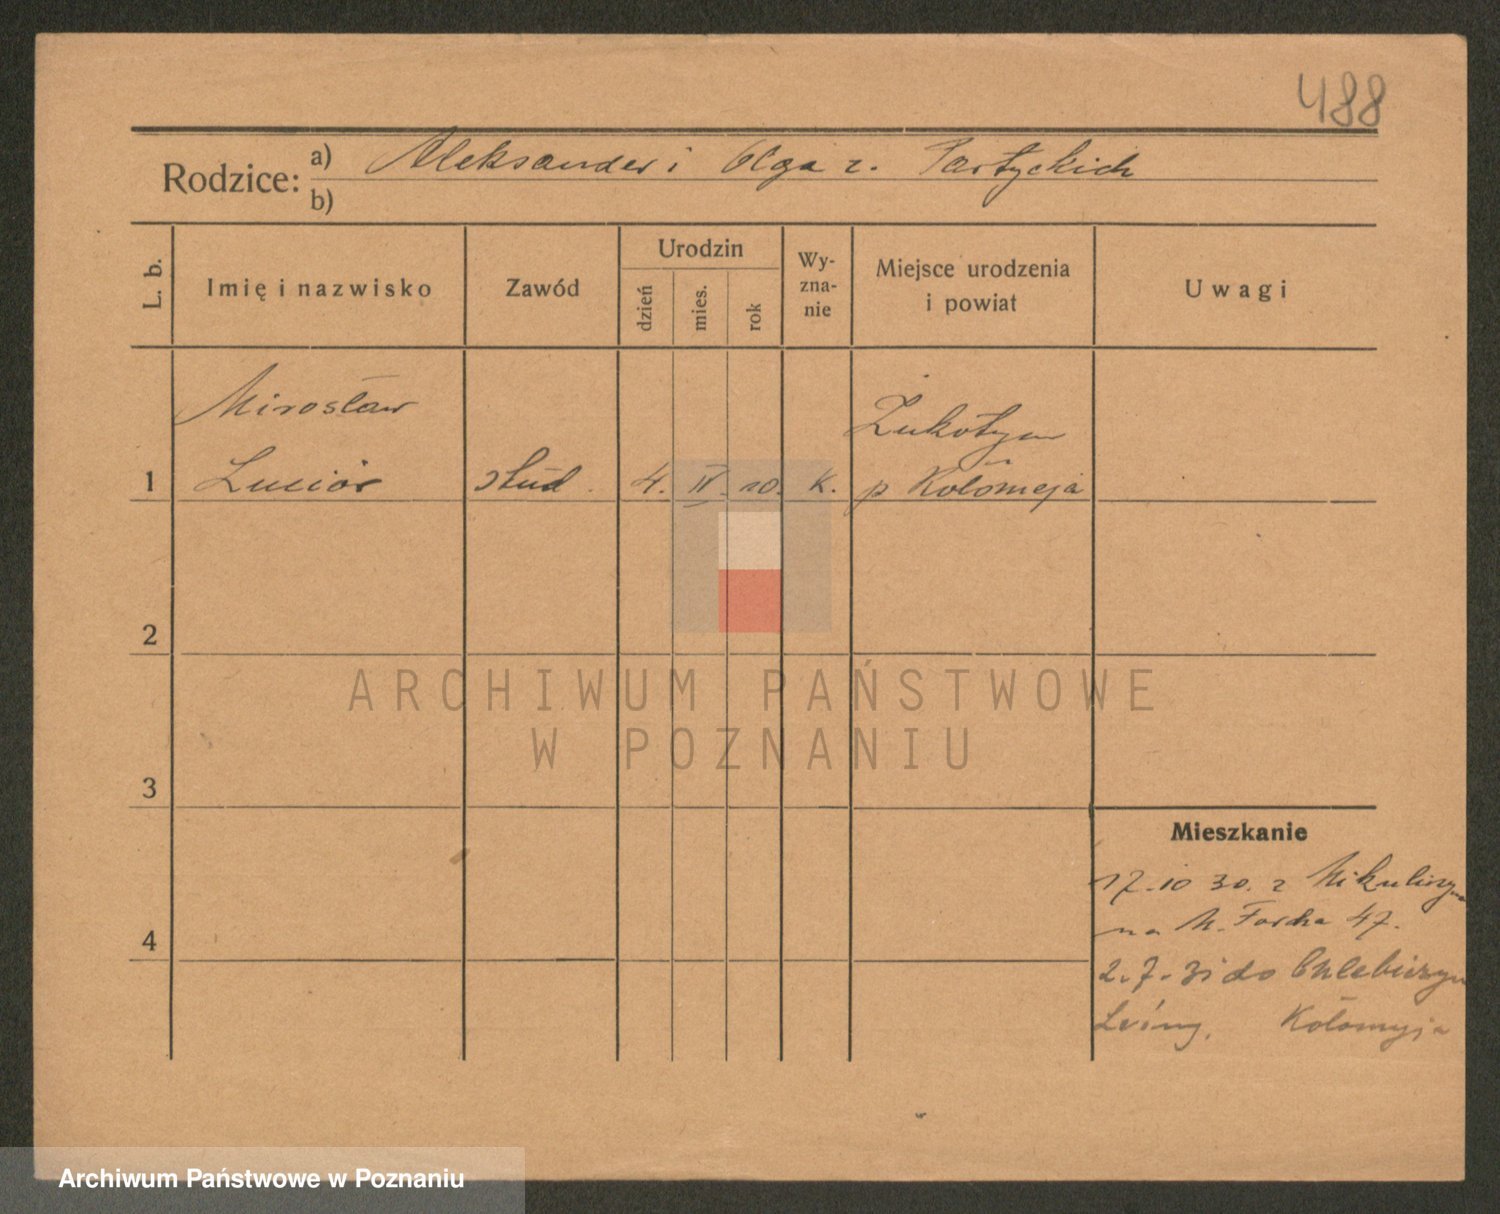 488
Rodzice: a) Aleksander i Olga z. Partyckich
b)
L. b.
Imię i nazwisko
Zawód
Urodzin
dzień
mies.
rok
Wy-
zna-
nie
Miejsce urodzenia
i powiat
Uwagi
Mirosław
Żukotyn
1
stud.
4. IV. 10. K.
p Kołomeja
2
ARCHIWUM PAŃSTWOWE
W POZNANIU
3
Mieszkanie
17.10 30. z Mikuliczyn
na M. Focha 47.
4
2.7.31 do Chlebiczyn
Leśny, Kołomyja
Archiwum Państwowe w Poznaniu